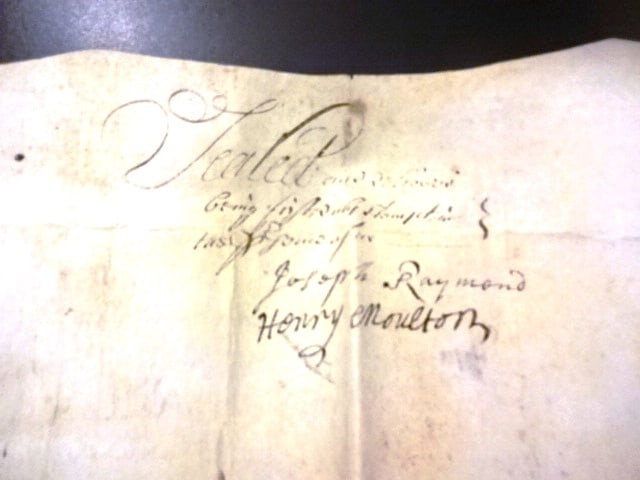 Sealed and delivered
being first duly stampt in
the presence of us
Joseph Raymond
Henry Moulton